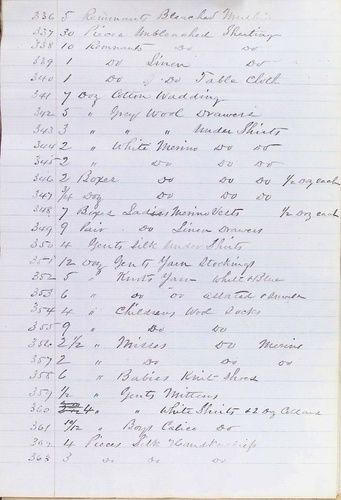 336 5 Remnants Bleached Muslin
337 30 Pieces Unbleached Sheeting
338 10 Remnants Do Do
339 1 Do Linen Do
340 1 Do Do Table Cloth
341 7 Doz Cotton Wadding
342 5 " Grey Wool Drawers
343 3 " " " Under Shirts
344 2 " White Merino Do Do
345 2 " Do Do Do
346 2 Boxes Do Do Do 1/2 Doz each
347 3/4 Doz Do Do Do
348 7 Boxes Ladies Merino Vests 1/2 Doz each
349 9 Pair Do Linen Drawers
350 4 Gents Silk Under Shirts
351 12 Doz Gents Yarn Stockings
352 5 " Knots Yarn White & Blue
353 6 " Do Do assorted
354 4 " Childrens Wool Socks
355 9 " Do Do
356 2 1/2 " Misses Do Merino
357 2 " Do Do Do
358 6 " Babies Knit Shoes
359 1/2 " Gents Mittens
360 4 " " White Shirts & 2 Doz Collars
361 10/12 " Boys Calico Do
362 4 Pieces Silk Handkerchiefs
363 3 Do Do Do